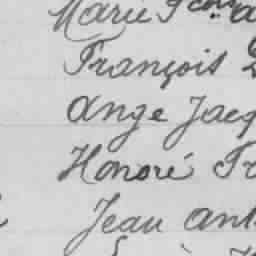 Marie
François
Ange Jacq
Honoré Fr
Jean Ant